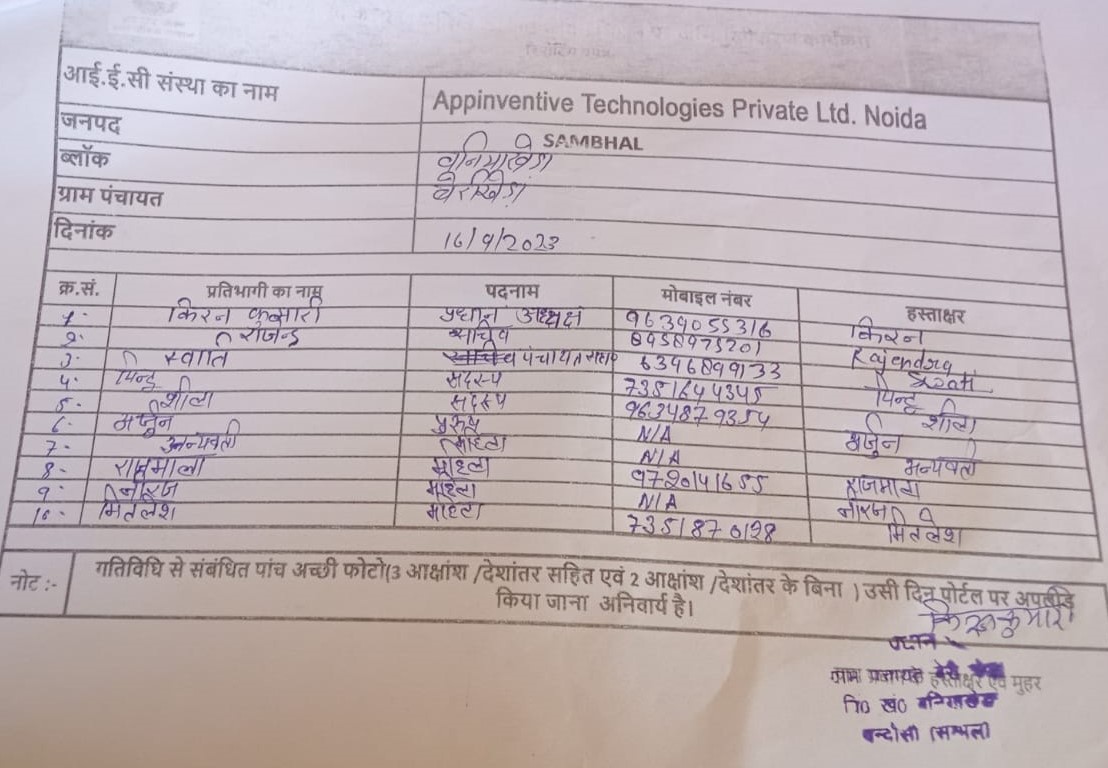 रिपोर्टिंग प्रपत्र
आई.ई.सी संस्था का नाम Appinventive Technologies Private Ltd. Noida
जनपद SAMBHAL
ब्लॉक बनियाखेड़ा
ग्राम पंचायत
दिनांक 16/9/2023
क्र.सं. प्रतिभागी का नाम पदनाम मोबाइल नंबर हस्ताक्षर
1- किरन कुमारी प्रधान अध्यक्ष 9639055316 किरन
2- राजेन्द्र सचिव 8958975201 Rajendra
3- स्वाति पंचायत सहा० 6396899133 Swati
4- पिन्टू सदस्य 7351644345 पिन्टू
5- शीला सदस्य 9634879354 शीला
6- अर्जुन पुरुष N/A अर्जुन
7- अन्यवती महिला N/A अन्यवती
8- राजमाला महिला 9720141655 राजमाला
9- नीरज महिला N/A नीरज
10- मितलेश महिला 7351870128 मितलेश
नोट :- गतिविधि से संबंधित पांच अच्छी फोटो(3 आक्षांश /देशांतर सहित एवं 2 आक्षांश /देशांतर के बिना ) उसी दिन पोर्टल पर अपलोड
किया जाना अनिवार्य है।
किरन कुमारी
प्रधान
ग्राम पंचायत हस्ताक्षर एवं मुहर
वि0 खं0 बनियाखेड़ा
चन्दौसी (सम्भल)